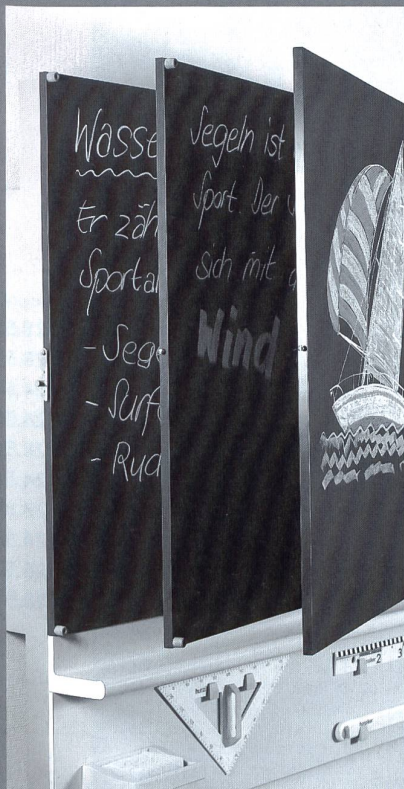 Wasse
Er zäh
Sporta
- Seg
- Surf
- Rud
Segeln ist
Sport. Der
sich mit d
Wind
2 3